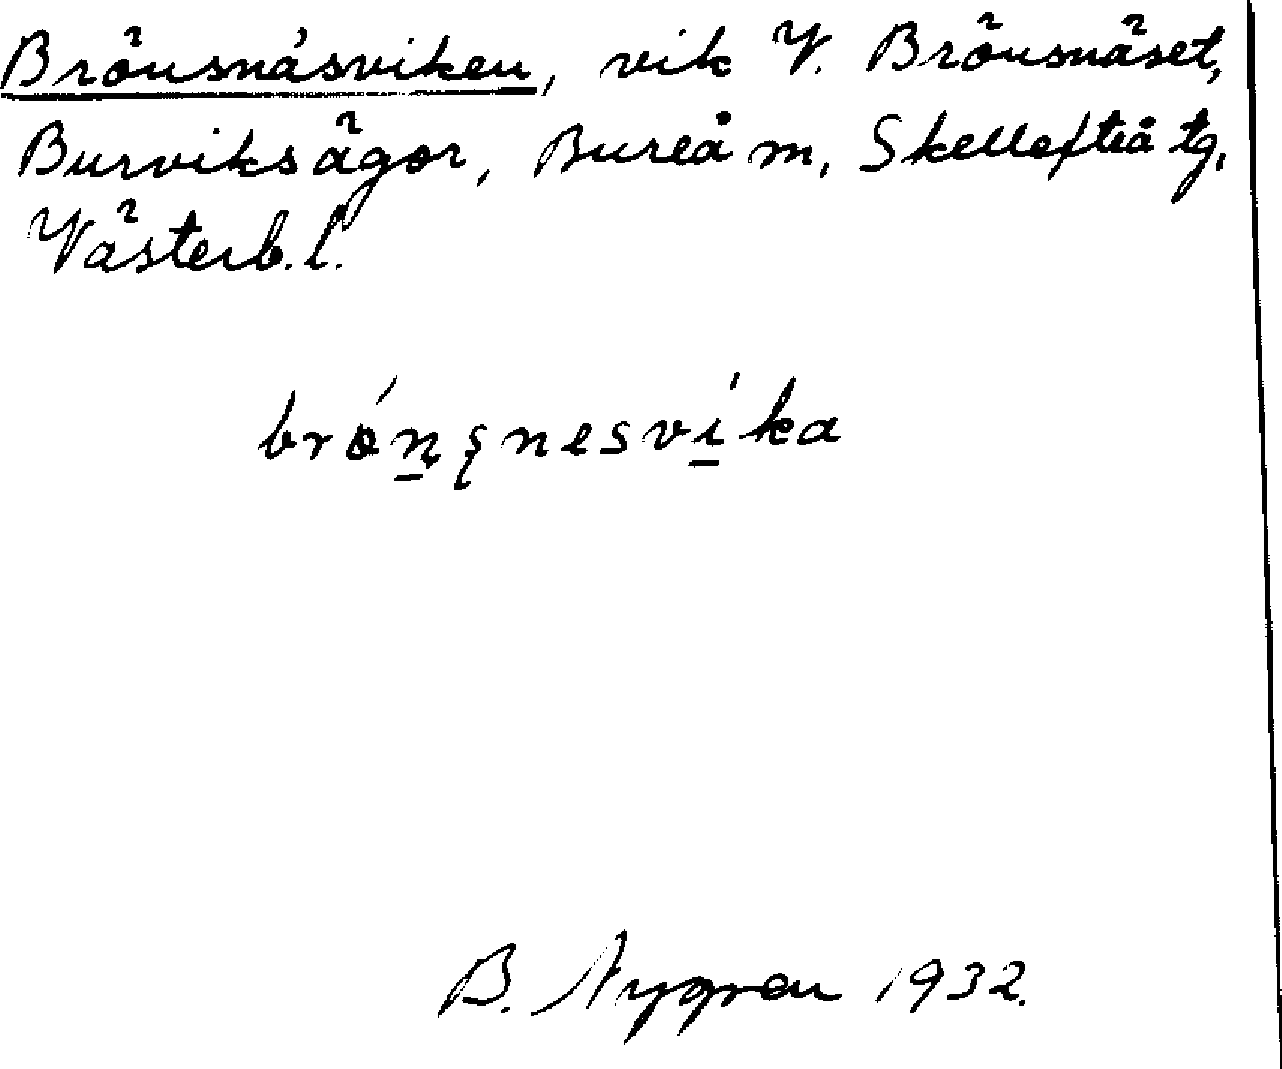 Brönsnäsviken, vik V. Brönsnäset,
Burviks ägor, Bureå m, Skellefteå tg,
Västerb. l.
brǿn̲ş̨nesví̲ka
B. Nygren 1932.